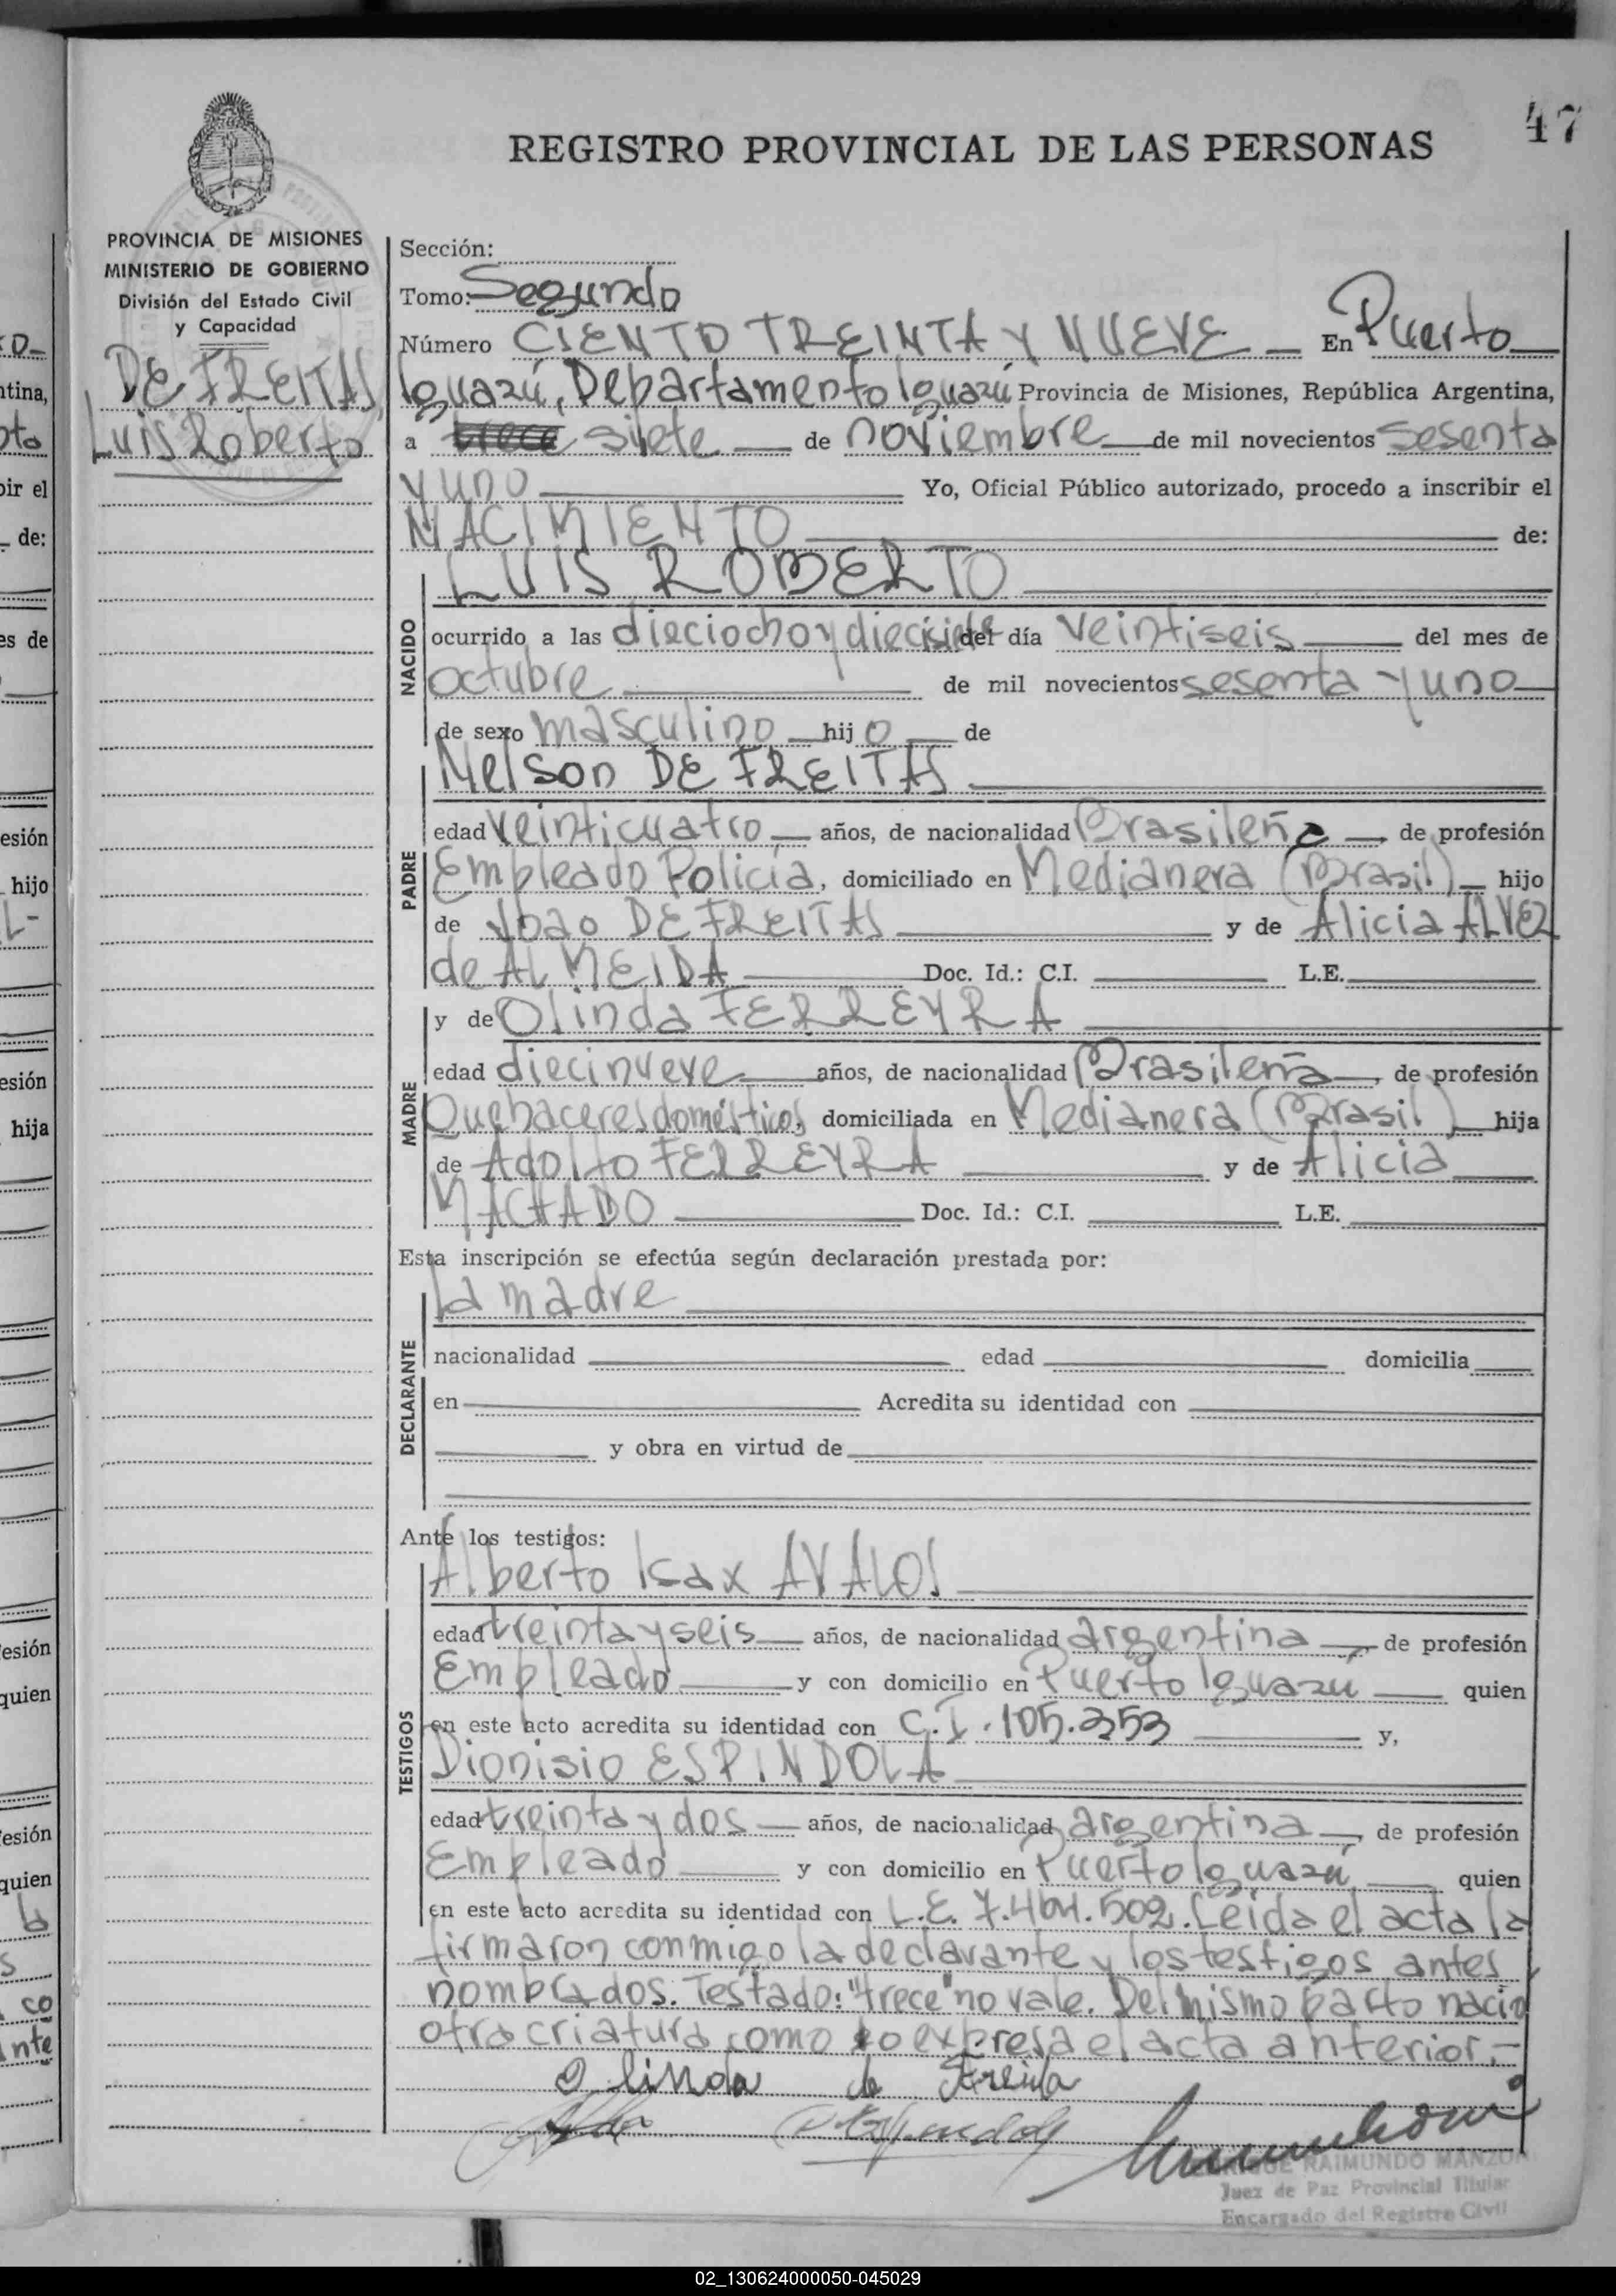 47
REGISTRO PROVINCIAL DE LAS PERSONAS
PROVINCIA DE MISIONES
MINISTERIO DE GOBIERNO
División del Estado Civil
y Capacidad
DE FREITAS,
Luis Roberto
Sección:
Tomo: Segundo
Número CIENTO TREINTA Y NUEVE En Puerto
Iguazú, Departamento Iguazú Provincia de Misiones, República Argentina,
a trece siete de noviembre de mil novecientos sesenta
y uno Yo, Oficial Público autorizado, procedo a inscribir el
NACIMIENTO de:
LUIS ROBERTO
NACIDO
ocurrido a las dieciocho y diecisiete del día veintiseis del mes de
octubre de mil novecientos sesenta y uno
de sexo masculino hijo de
Nelson DE FREITAS
PADRE
edad veinticuatro años, de nacionalidad Brasileña, de profesión
Empleado Policía, domiciliado en Medianera (Brasil) hijo
de Joao DE FREITAS y de Alicia ALVEZ
de ALMEIDA Doc. Id.: C.I. L.E.
MADRE
y de Olinda FERREYRA
edad diecinueve años, de nacionalidad Brasileña, de profesión
Quehaceres domésticos, domiciliada en Medianera (Brasil) hija
de Adolfo FERREYRA y de Alicia
MACHADO Doc. Id.: C.I. L.E.
Esta inscripción se efectúa según declaración prestada por:
la madre
DECLARANTE
nacionalidad edad domicilia
en Acredita su identidad con
y obra en virtud de
Ante los testigos:
Alberto Isax AVALOS
TESTIGOS
edad treinta y seis años, de nacionalidad argentina, de profesión
Empleado y con domicilio en Puerto Iguazú quien
en este acto acredita su identidad con C.I. 105.353 y,
Dionisio ESPINDOLA
edad treinta y dos años, de nacionalidad argentina, de profesión
Empleado y con domicilio en Puerto Iguazú quien
en este acto acredita su identidad con L.E. 7.464.502. Leída el acta la
firmaron conmigo la declarante y los testigos antes
nombrados. Testado: "trece" no vale. Del mismo parto nació
otra criatura como lo expresa el acta anterior.-
Olinda de Freita
RAIMUNDO MANZONI
Juez de Paz Provincial Titular
Encargado del Registro Civil
02_130624000050-045029